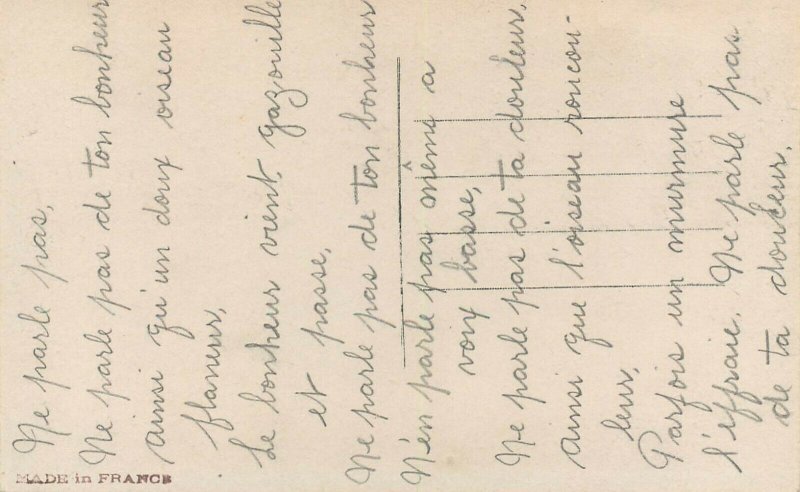 Ne parle pas,
Ne parle pas de ton bonheur
ainsi qu'un doux oiseau
flaneur,
Le bonheur vient, gazouille
et passe,
Ne parle pas de ton bonheur
N'en parle pas même a
voix basse,
Ne parle pas de ta douleur,
ainsi que l'oiseau roucou-
leur,
Parfois un murmure
l'effraie. Ne parle pas
de ta douleur.
MADE in FRANCE